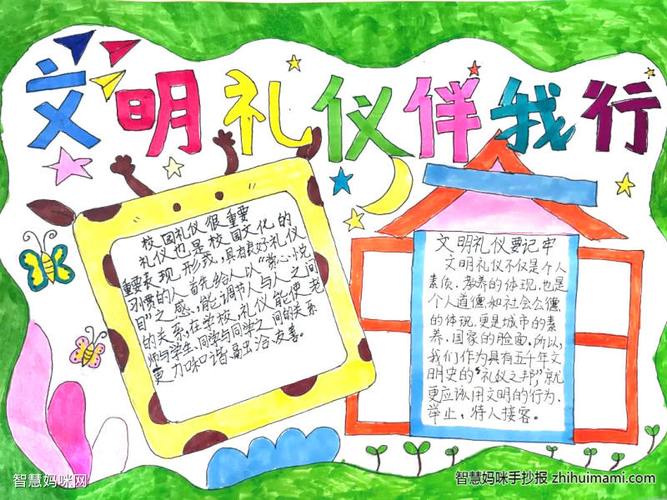 文明礼仪伴我行
校园礼仪很重要
礼仪也是校园文化的
重要表现形我,具有良好礼仪
习惯的人,首先给人以“赏心悦
目”之感,能调节人与人之间
的关系,在学校,礼仪能使老
师与学生,同学与同学之间的关系
更力味谐易出洽友善。
文明礼仪要记牢
文明礼仪不仅是个人
素质、教养的体现,也是
个人道德和社会公德
的体现,更是城市的素
养,国家的脸面,所以,
我们作为具有五千年文
明史的“礼仪之邦”,就
更应该用文明的行为,
举止,待人接客。
智慧妈咪网
智慧妈咪手抄报 zhihuimami.com